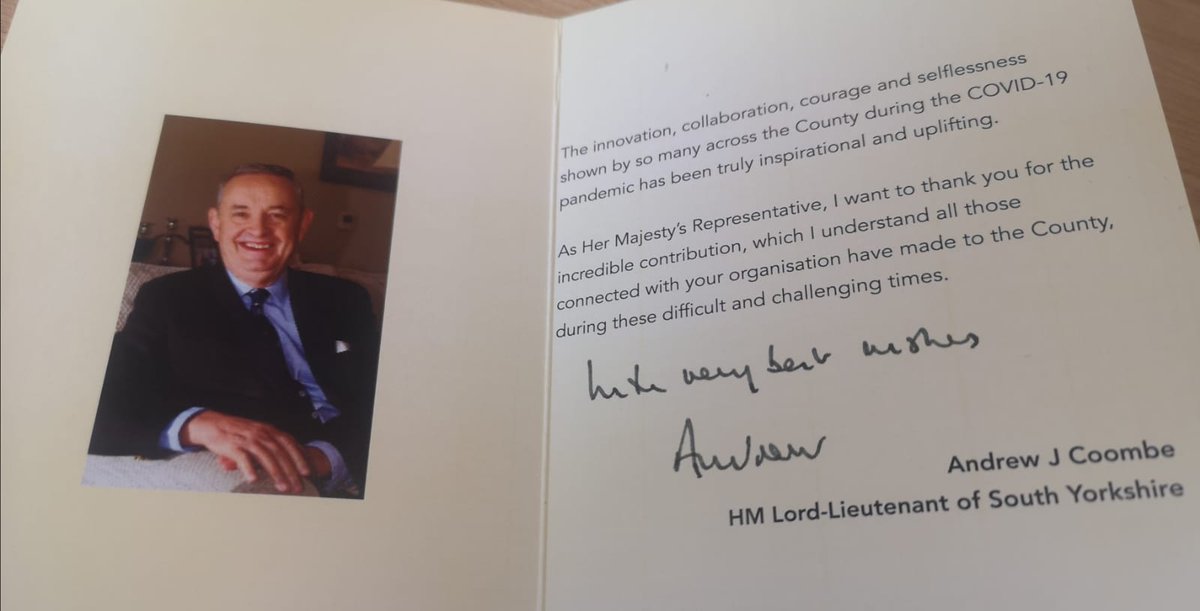 The innovation, collaboration, courage and selflessness
shown by so many across the County during the COVID-19
pandemic has been truly inspirational and uplifting.
As Her Majesty's Representative, I want to thank you for the
incredible contribution, which I understand all those
connected with your organisation have made to the County,
during these difficult and challenging times.
With very best wishes
Andrew
Andrew J Coombe
HM Lord-Lieutenant of South Yorkshire